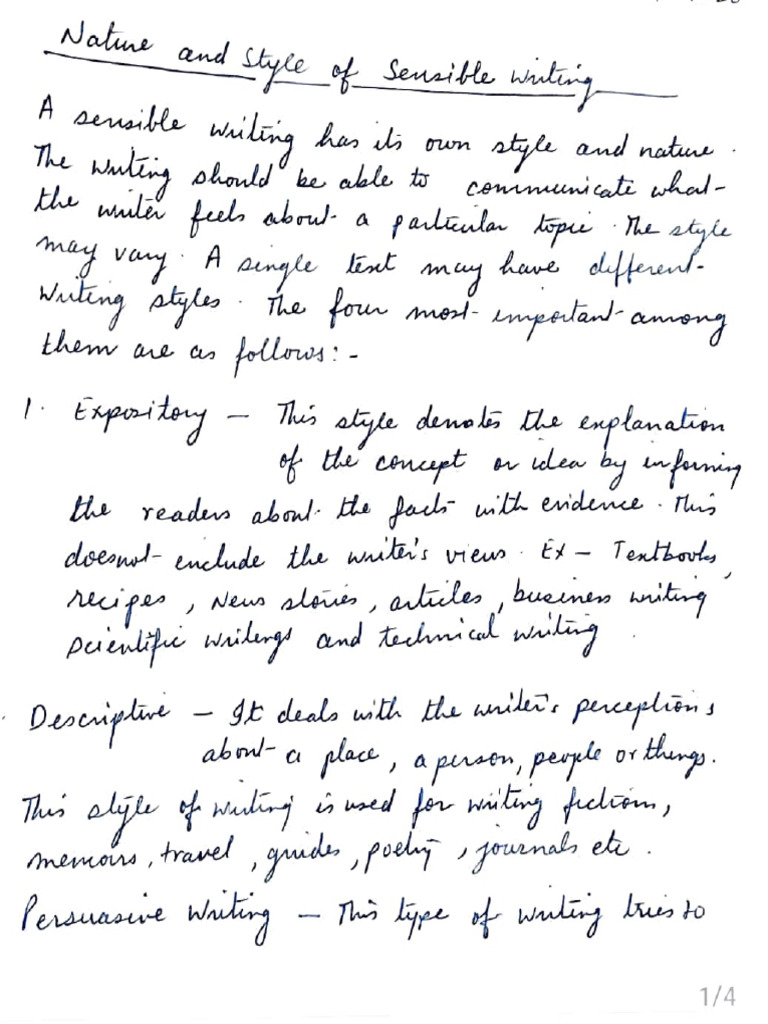 Nature and Style of Sensible Writing
A sensible writing has its own style and nature.
The writing should be able to communicate what
the writer feels about a particular topic. The style
may vary. A single text may have different
Writing styles. The four most important among
them are as follows:-
1. Expository – This style denotes the explanation
of the concept or idea by informing
the readers about the facts with evidence. This
doesnot include the writer's views. Ex – Textbooks,
recipes, News stories, articles, business writing
scientific writings and technical writing.
Descriptive – It deals with the writer's perceptions
about a place, a person, people or things.
This style of writing is used for writing fiction,
memoirs, travel, guides, poetry, journals etc.
Persuasive Writing – This type of writing tries to
1/4